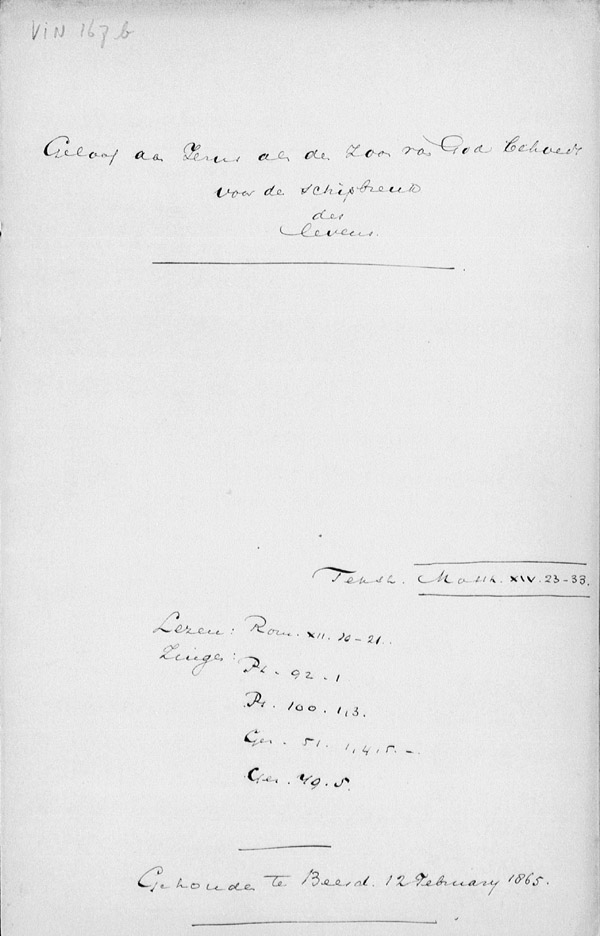 VIN 167 b
Geloof aan Jezus als de Zoon van God behoedt
voor de schipbreuk
des
levens.
Tekst. Matth. XIV. 23-33.
Lezen: Rom. XII. 10-21.
Zingen:
Ps. 92. 1
Ps. 100. 1,3.
Gez. 51. 1,4,5. -
Gez. 49. 5.
Gehouden te Beesd. 12 February 1865.